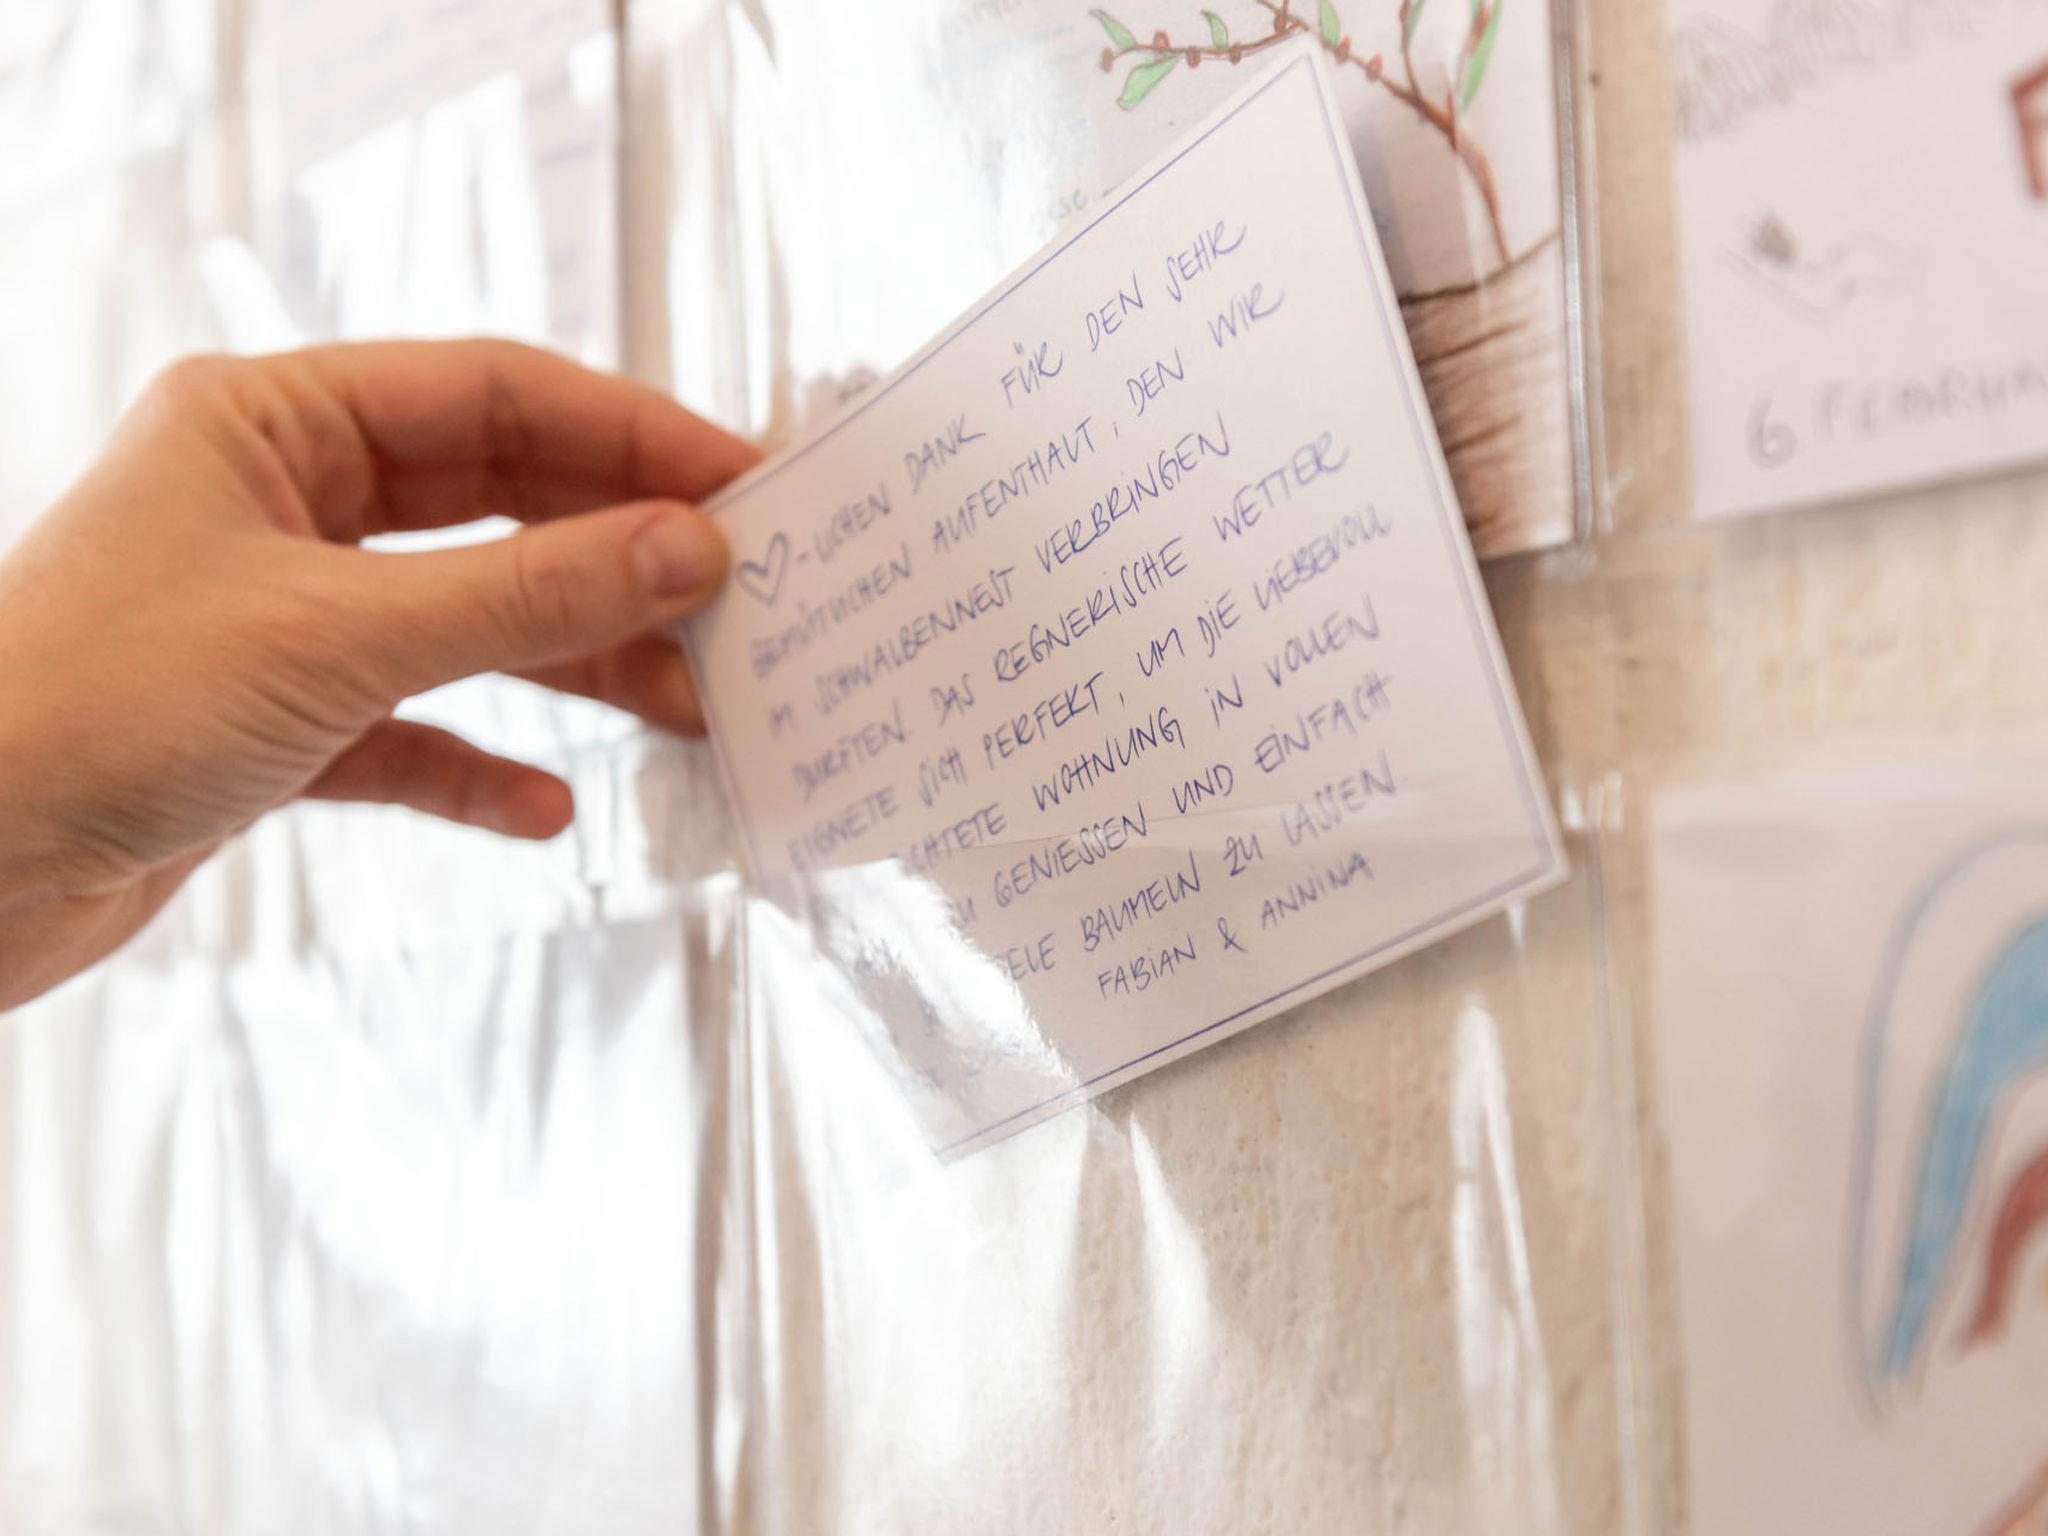 ♡-LICHEN DANK FÜR DEN SEHR
GEMÜTLICHEN AUFENTHALT, DEN WIR
IM SCHWALBENNEST VERBRINGEN
DURFTEN. DAS REGNERISCHE WETTER
EIGNETE SICH PERFEKT, UM DIE LIEBEVOLL
CHTETE WOHNUNG IN VOLLEN
ZU GENIESSEN UND EINFACH
ELE BAUMELN ZU LASSEN.
FABIAN & ANNINA
6. FEBRUA